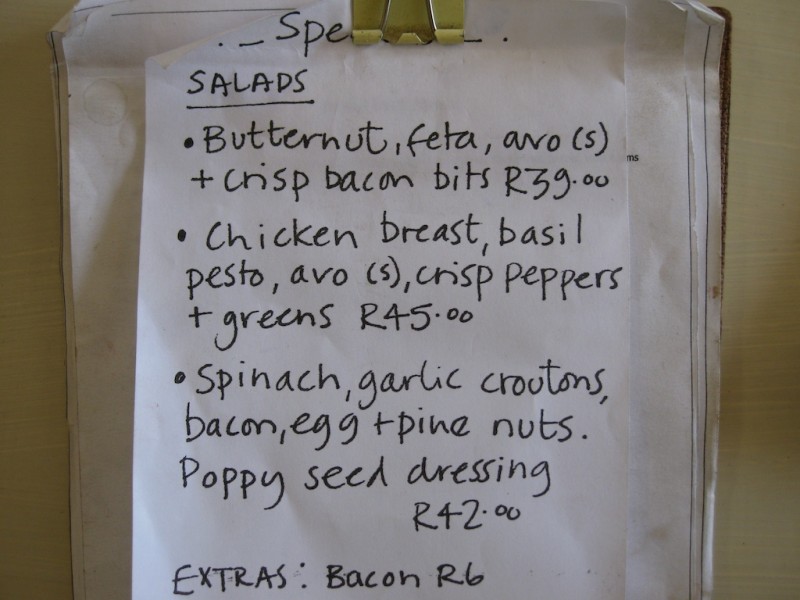 SALADS
• Butternut, feta, avo (s)
+ crisp bacon bits R39.00
• Chicken breast, basil
pesto, avo (s), crisp peppers
+ greens R45.00
• Spinach, garlic croutons,
bacon, egg + pine nuts.
Poppy seed dressing
R42.00
EXTRAS: Bacon R6